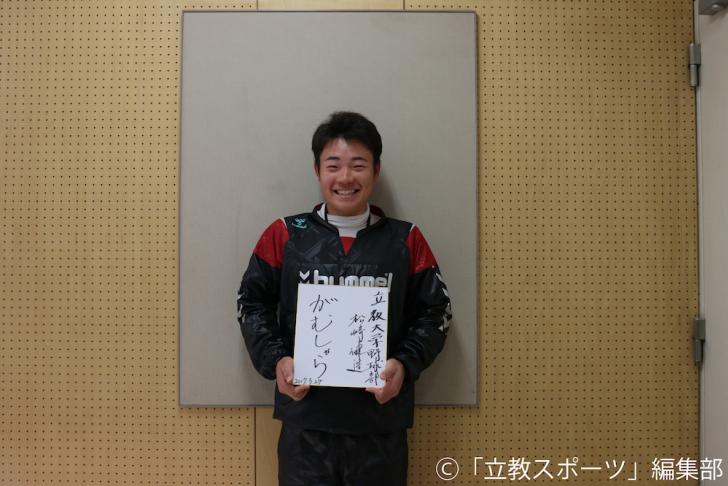 hummel
立教大学野球部
松﨑健造
がむしゃら
2017.3.29
©「立教スポーツ」編集部